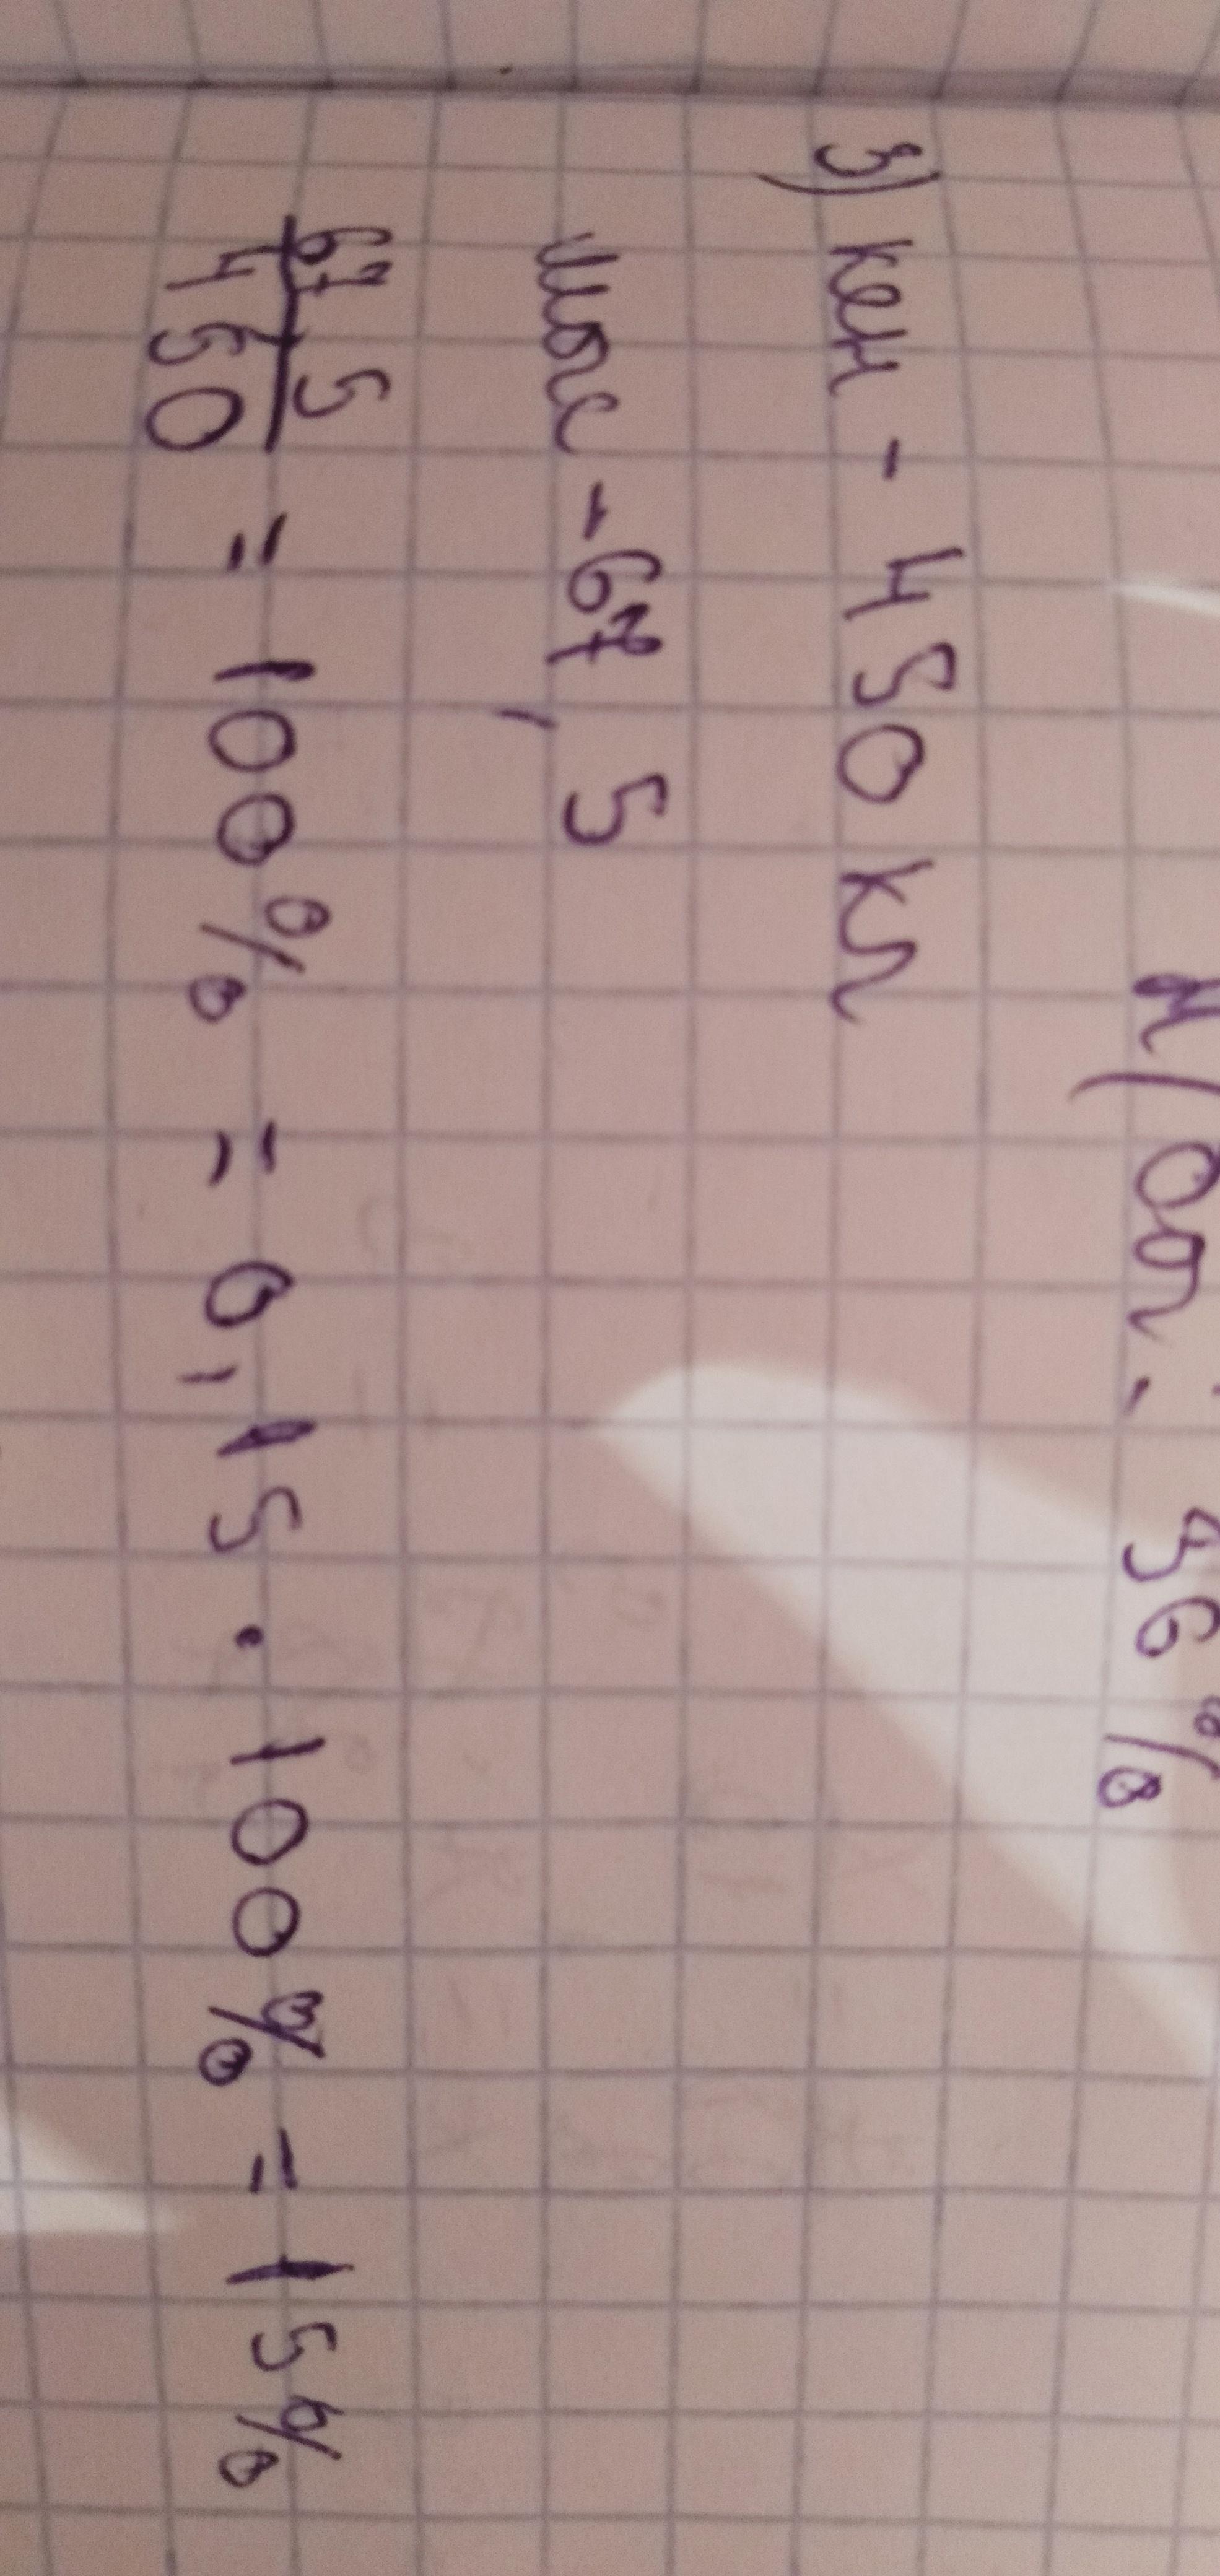 ж/бы: 36%
3) кен - 450 кг
мыс - 67,5
67 5 / 450 = 100% = 0,15 · 100% = 15%